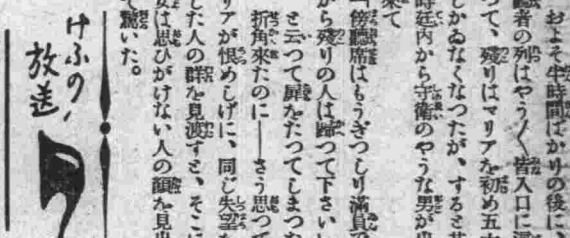 およそ半時間ばかりの後に、
聽者の列はやう〳〵皆入口に
つて、殘りはマリアを初め五
しかゐなくなつたが、すると
時廷内から守衞のやうな男が
來て
「傍聽席はもうぎつしり滿員
から殘りの人は歸つて下さい
と云つて扉をたつてしまつた
折角來たのに――さう思つて
リアが恨めしげに、同じ失望
した人の群を見渡すと、そこに
女は思ひがけない人の顏を見出
て驚いた。
けふの
放送